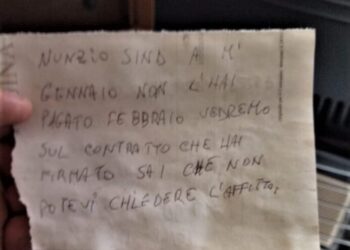 NUNZIO SINO A M'
GENNAIO NON L'HAI
PAGATO FEBBRAIO VEDREMO
SUL CONTRATTO CHE HAI
FIRMATO SAI CHE NON
POTEVI CHIEDERE L'AFFITTO,